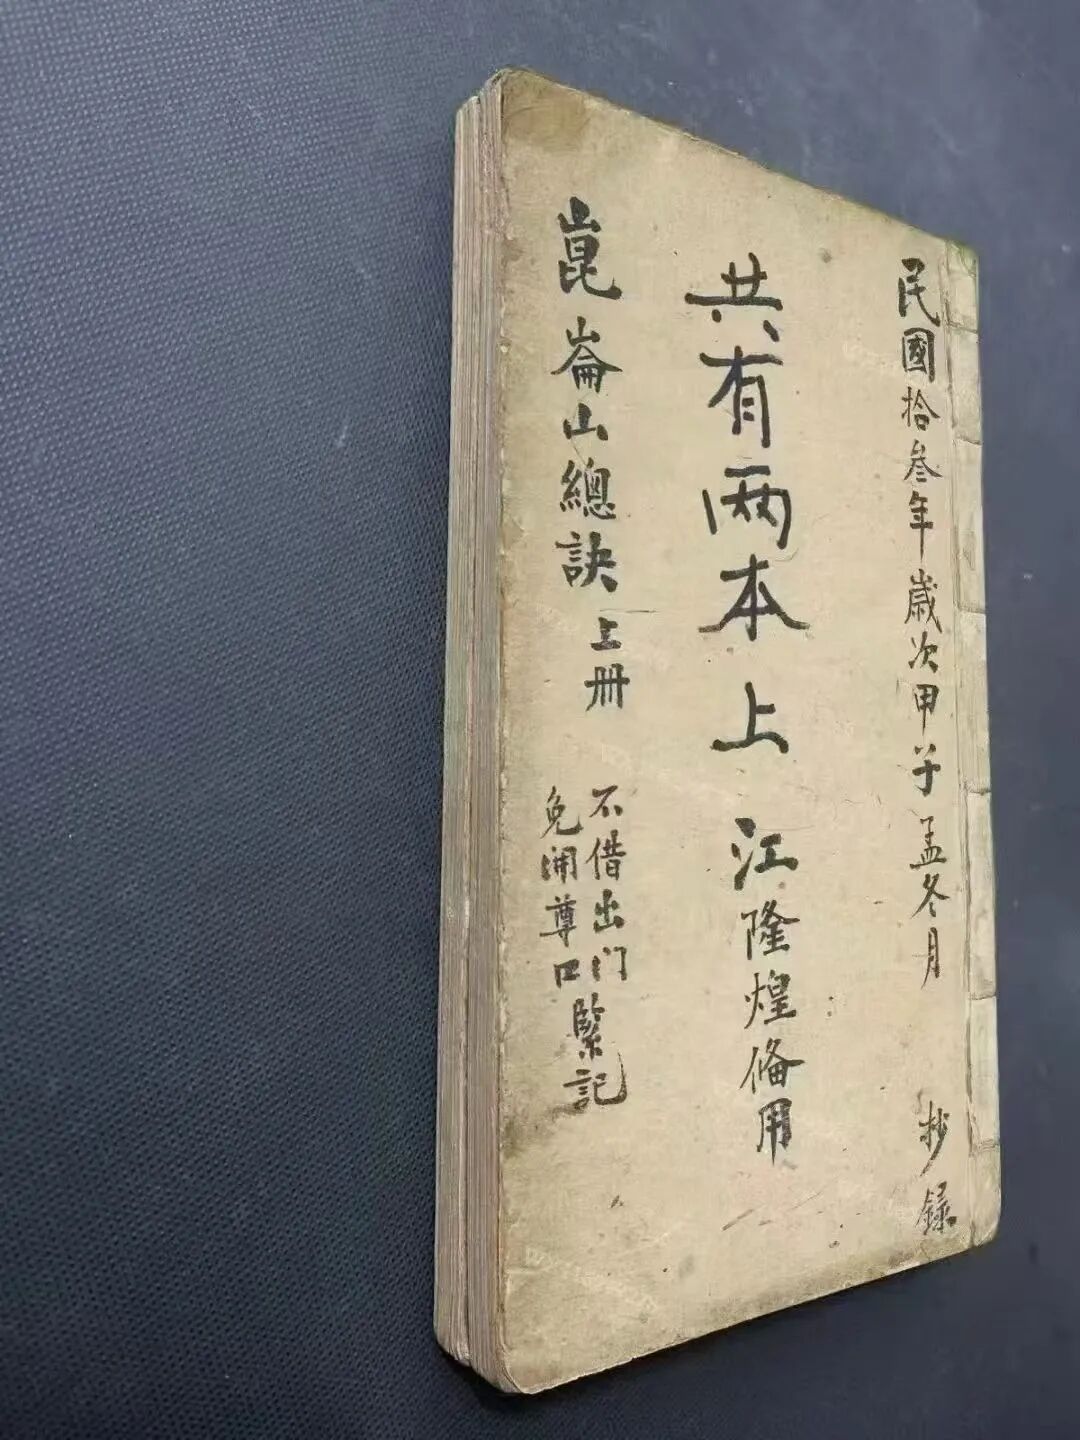 民國拾叁年歲次甲子孟冬月 抄録
共有两本上 江隆煌俻用
崑崙山總訣上册
不借出门
免開尊口
緊記